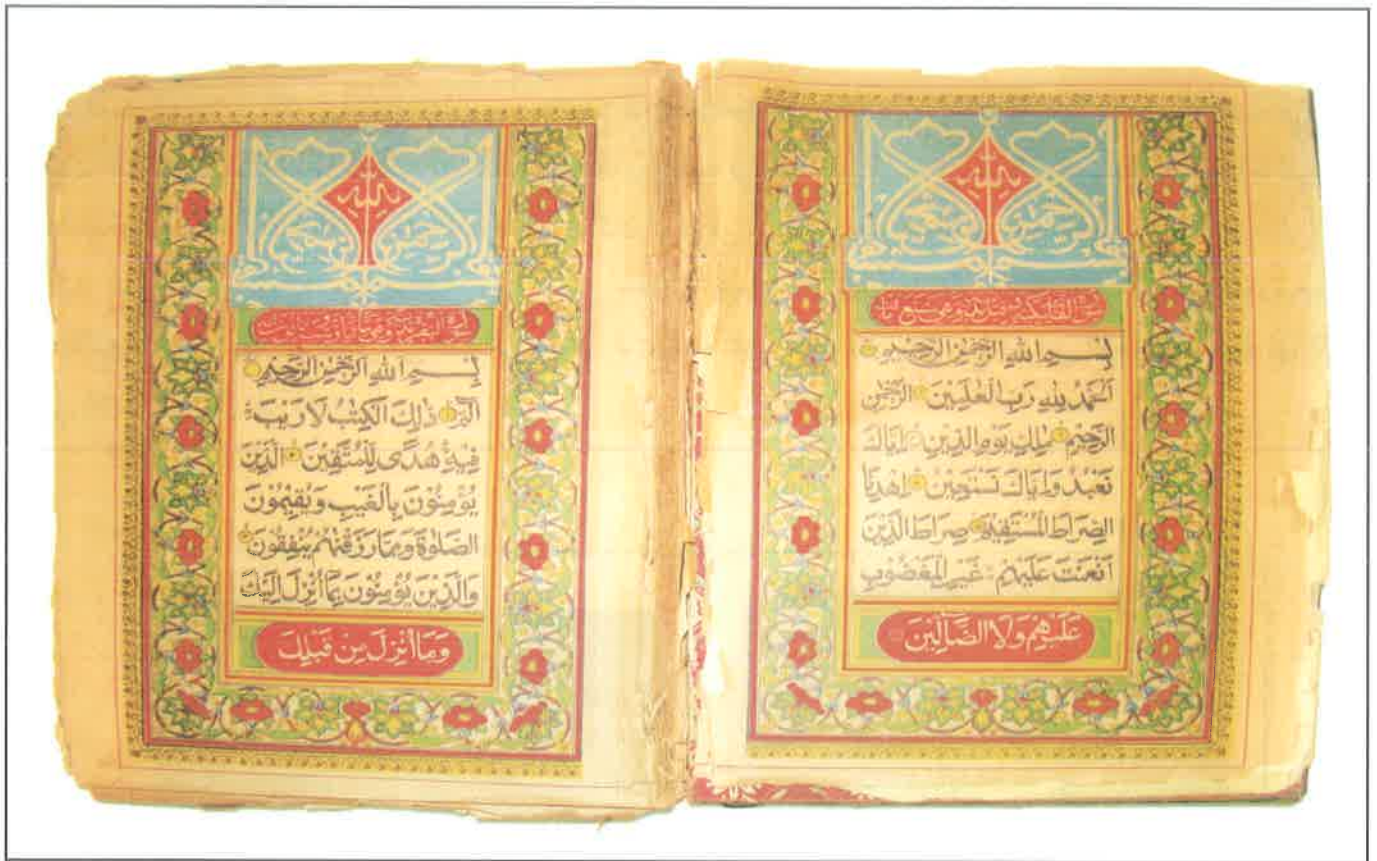 بِسْمِ اللهِ الرَّحْمٰنِ الرَّحِيْمِ
اَلْحَمْدُ لِلّٰهِ رَبِّ الْعٰلَمِيْنَ الرَّحْمٰنِ
الرَّحِيْمِ مٰلِكِ يَوْمِ الدِّيْنِ اِيَّاكَ
نَعْبُدُ وَاِيَّاكَ نَسْتَعِيْنُ اِهْدِنَا
الصِّرَاطَ الْمُسْتَقِيْمَ صِرَاطَ الَّذِيْنَ
اَنْعَمْتَ عَلَيْهِمْ غَيْرِ الْمَغْضُوْبِ
عَلَيْهِمْ وَلَا الضَّآلِّيْنَ
بِسْمِ اللهِ الرَّحْمٰنِ الرَّحِيْمِ
الٓمّٓ ذٰلِكَ الْكِتٰبُ لَا رَيْبَ
فِيْهِ هُدًى لِّلْمُتَّقِيْنَ الَّذِيْنَ
يُؤْمِنُوْنَ بِالْغَيْبِ وَيُقِيْمُوْنَ
الصَّلٰوةَ وَمِمَّا رَزَقْنٰهُمْ يُنْفِقُوْنَ
وَالَّذِيْنَ يُؤْمِنُوْنَ بِمَآ اُنْزِلَ اِلَيْكَ
وَمَآ اُنْزِلَ مِنْ قَبْلِكَ